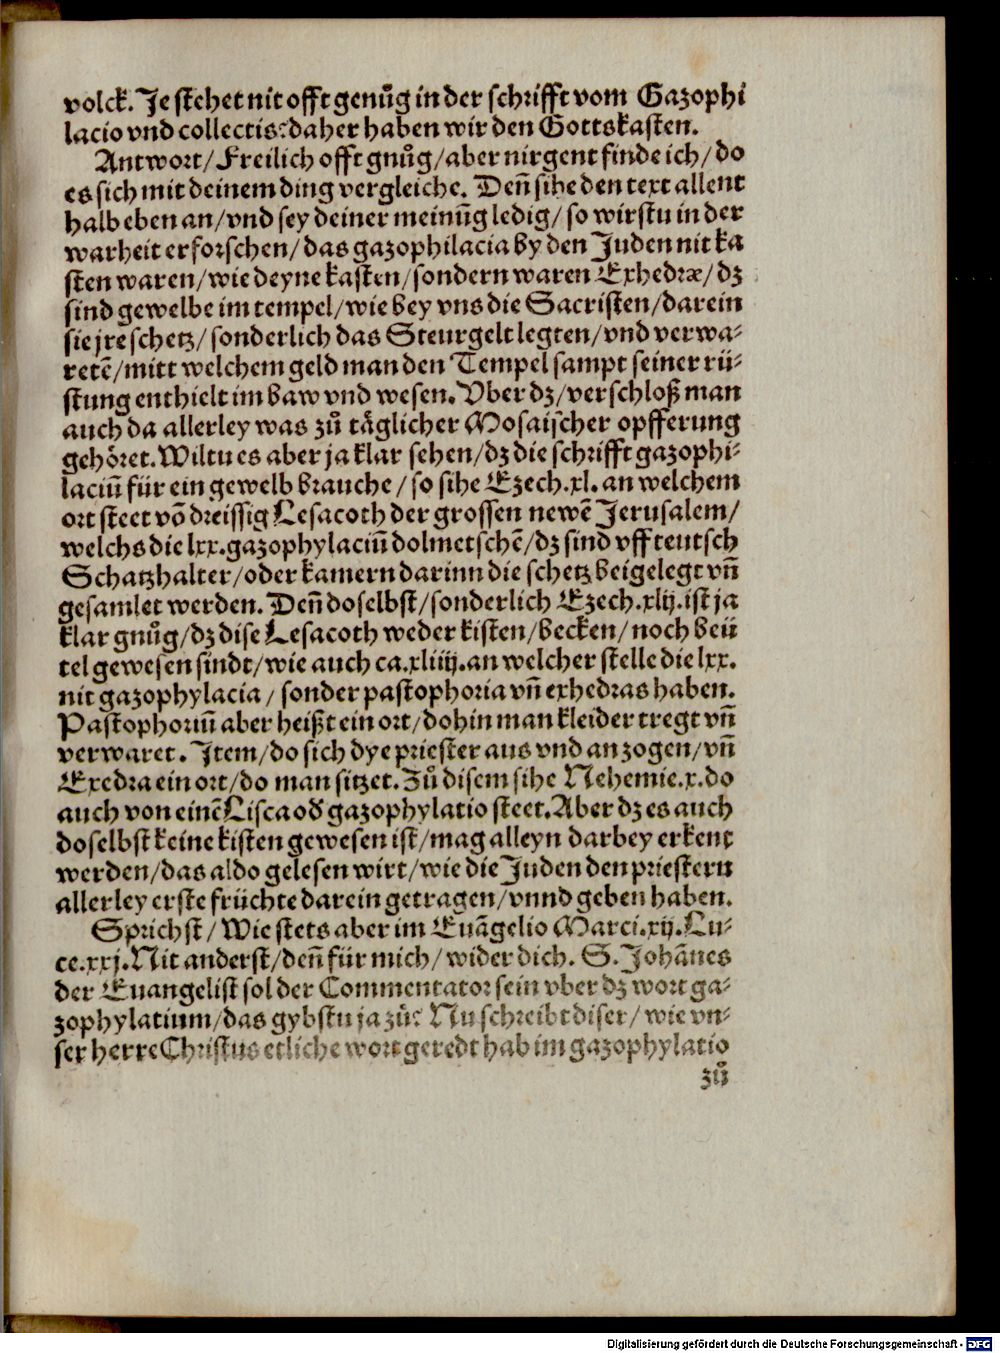 volck. Je stehet nit offt genůg in der schrifft vom Gazophi
lacio vnd collectis: daher haben wir den Gottskasten.
Antwort/ Freilich offt gnůg/ aber nirgent finde ich/ do
es sich mit deinem ding vergleiche. Deñ sihe den text allent
halb eben an/ vnd sey deiner meinũg ledig/ so wirstu in der
warheit erforschen/ das gazophilacia by den Juden nit ka
sten waren/ wie deyne kasten/ sondern waren Exhedræ/ dz
sind gewelbe im tempel/ wie bey vns die Sacristen/ darein
sie jre schetz/ sonderlich das Steurgelt legten/ vnd verwa-
retẽ/ mitt welchem geld man den Tempel sampt seiner rü-
stung enthielt im baw vnd wesen. Vber dz/ verschloß man
auch da allerley was zů täglicher Mosaischer opfferung
gehöret. Wiltu es aber ja klar sehen/ dz die schrifft gazophi-
laciũ für ein gewelb brauche/ so sihe Ezech.xl. an welchem
ort steet võ dreissig Lesacoth der grossen newẽ Jerusalem/
welchs die lxx. gazophylaciũ dolmetschẽ/ dz sind vff teutsch
Schatzhalter/ oder kamern darinn die schetz beigelegt vñ
gesamlet werden. Deñ doselbst/ sonderlich Ezech.xlij. ist ja
klar gnůg/ dz dise Lesacoth weder kisten/ becken/ noch beü
tel gewesen sindt/ wie auch ca.xliiij. an welcher stelle die lxx.
nit gazophylacia/ sonder pastophoria vñ exhedras haben.
Pastophoriũ aber heißt ein ort/ dohin man kleider tregt vñ
verwaret. Item/ do sich dye priester aus vnd an zogen/ vñ
Exedra ein ort/ do man sitzet. Zů disem sihe Nehemie.x. do
auch von einẽ Lisca oď gazophylatio steet. Aber dz es auch
doselbst keine kisten gewesen ist/ mag alleyn darbey erkent
werden/ das aldo gelesen wirt/ wie die Juden den priestern
allerley erste früchte darein getragen/ vnnd geben haben.
Sprichst/ Wie stets aber im Euãgelio Marci.xij. Lu-
ce.xxj. Nit anderst/ deñ für mich/ wider dich. S. Johãnes
der Euangelist sol der Commentator sein vber dz wort ga-
zophylatium/ das gybstu ja zů: Nu schreibt diser/ wie vn-
ser herre Christus etliche wort geredt hab im gazophylatio
zů
Digitalisierung gefördert durch die Deutsche Forschungsgemeinschaft - DFG